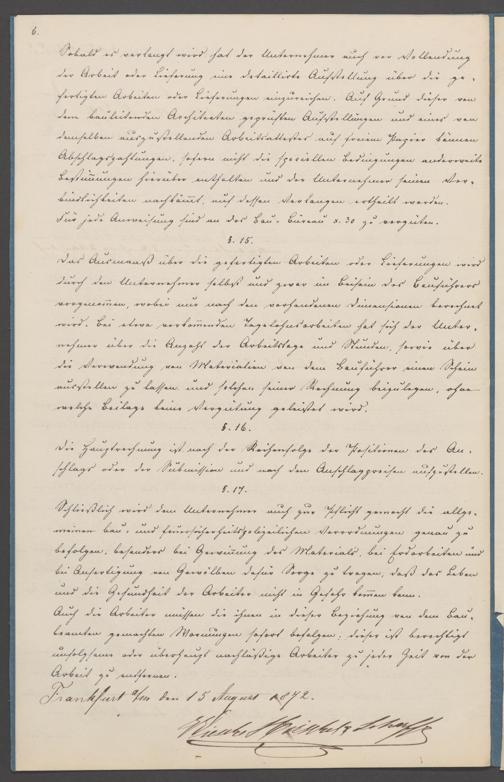 6.
Sobald es verlangt wird hat der Unternehmer auch vor Vollendung
der Arbeit oder Lieferung eine detaillirte Aufstellung über die ge-
fertigten Arbeiten oder Lieferungen einzureichen. Auf Grund dieser von
dem bauleitenden Architecten geprüften Aufstellungen und eines von
demselben auszustellenden Arbeitsattestes auf freiem Papier können
Abschlagszahlungen, sofern nicht die speciellen Bedingungen anderweite
Bestimmungen hierüber enthalten und der Unternehmer seinen Ver-
bindlichkeiten nachkömmt, auf dessen Verlangen ertheilt werden.
Für jede Anweisung sind an das Bau-Büreau x. 30 zu vergüten.
§. 15.
Das Ausmaaß über die gefertigten Arbeiten oder Lieferungen wird
durch den Unternehmer selbst und zwar im Beisein des Bauführers
vorgenommen, wobei nur nach den vorhandenen Dimensionen berechnet
wird. Bei etwa vorkommenden Tagelohnsarbeiten hat sich der Unter-
nehmer über die Anzahl der Arbeitstage und Stunden, sowie über
die Verwendung von Materialien von dem Bauführer einen Schein
ausstellen zu lassen und solchen seiner Rechnung beizulegen, ohne
welche Beilage keine Vergütung geleistet wird.
§. 16.
Die Hauptrechnung ist nach der Reihenfolge der Positionen des An-
schlags oder der Submission und nach den Anschlagspreisen aufzustellen.
§. 17.
Schließlich wird dem Unternehmer auch zur Pflicht gemacht die allge-
meinen bau- und feuersicherheitspolizeilichen Verordnungen genau zu
befolgen, besonders bei Gewinnung des Materials, bei Erdarbeiten und
bei Anfertigung von Gewölben dafür Sorge zu tragen, daß das Leben
und die Gesundheit der Arbeiter nicht in Gefahr kommen kann.
Auch die Arbeiter müssen die ihnen in dieser Beziehung von dem Bau-
beamten gemachten Warnungen sofort befolgen; dieser ist berechtigt
unfolgsame oder überhaupt nachlässige Arbeiter zu jeder Zeit von der
Arbeit zu entfernen.
Frankfurt a/m den 15 August 1872.